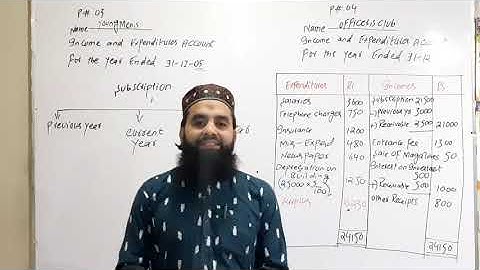 P# 03
Name Youngmen's
Income and Expenditures Account
For the Year Ended 31-12-05
Subscription
Previous year
Current
year
P# 04
Name officers club
Income and Expenditures Acc
For the Year Ended 31-12
Expenditures Rs Incomes RS
Salaries 3600 Subscription 21500
Telephone charges 750 Previous yr 3000
+) Receivable 2500 21000
Insurance 1200 Entrance Fee 1300
Mis- Exped 480 Sale of Magazines 50
News Paper 640 Interest on Investment
Depreciation on 500
Building 1250 +) Receivable 500 1000
(25000 × 5/100)
Surplus other Receipts 800
24150 24150